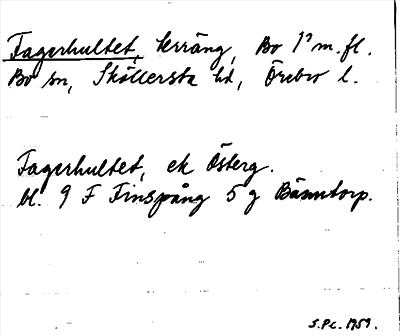 Fagerhultet, terräng, Bo 1² m.fl.
Bo sn, Sköllersta hd, Örebro l.
Fagerhultet, ek Österg.
bl. 9 F Finspång 5 g Bänntorp.
S.Pc. 1959.